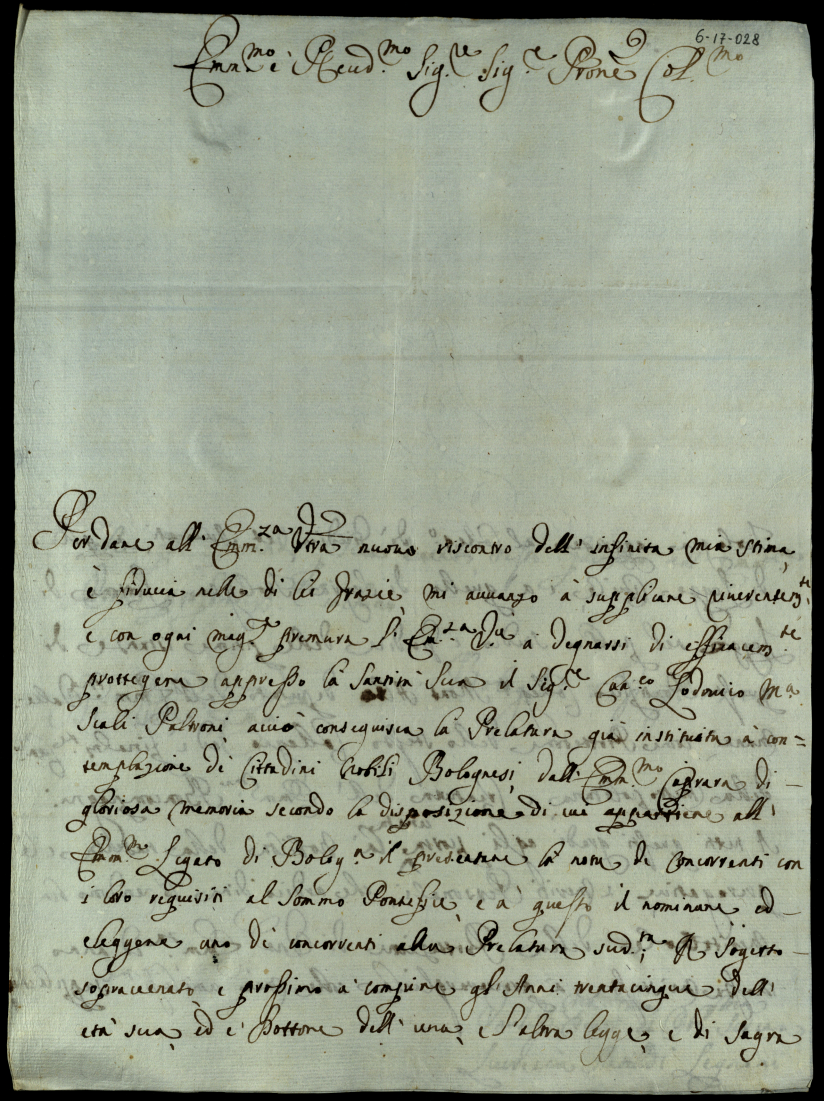 6-17-028
Emm.mo è Reud.mo Sig.re Sig.e Prone Col.mo
Per dare all' Emm.za Vra nuovo riscontro dell' infinita mia stima,
è fiducia nelle di lei grazie, mi auuanzo à supplicare riuerentem.te
e con ogni mag.r premura l' Em.za V.ra a degnarsi di efficacem.te
proteggere appresso la Santità Sua il Sig.re Can.co Lodouico M.a
Scali Paltroni acciò conseguisca la Prelatura già instituita à con=
templazione de Cittadini Nobili Bolognesi dall' Emm.mo Caprara di
gloriosa memoria secondo la disposizione di cui appartiene all'
Emm.mo Legato di Bolog.a il presentare la nota de concorrenti con
i loro requisiti al Sommo Pontefice, e à questo il nominare ed
eleggere uno de concorrenti alla Prelatura sud.ta; Il Sogetto
sopracenato è prossimo à compire gl' Anni trentacinque dell'
età sua, ed è Dottore dell' una, e l'altra legge, e di Sagra